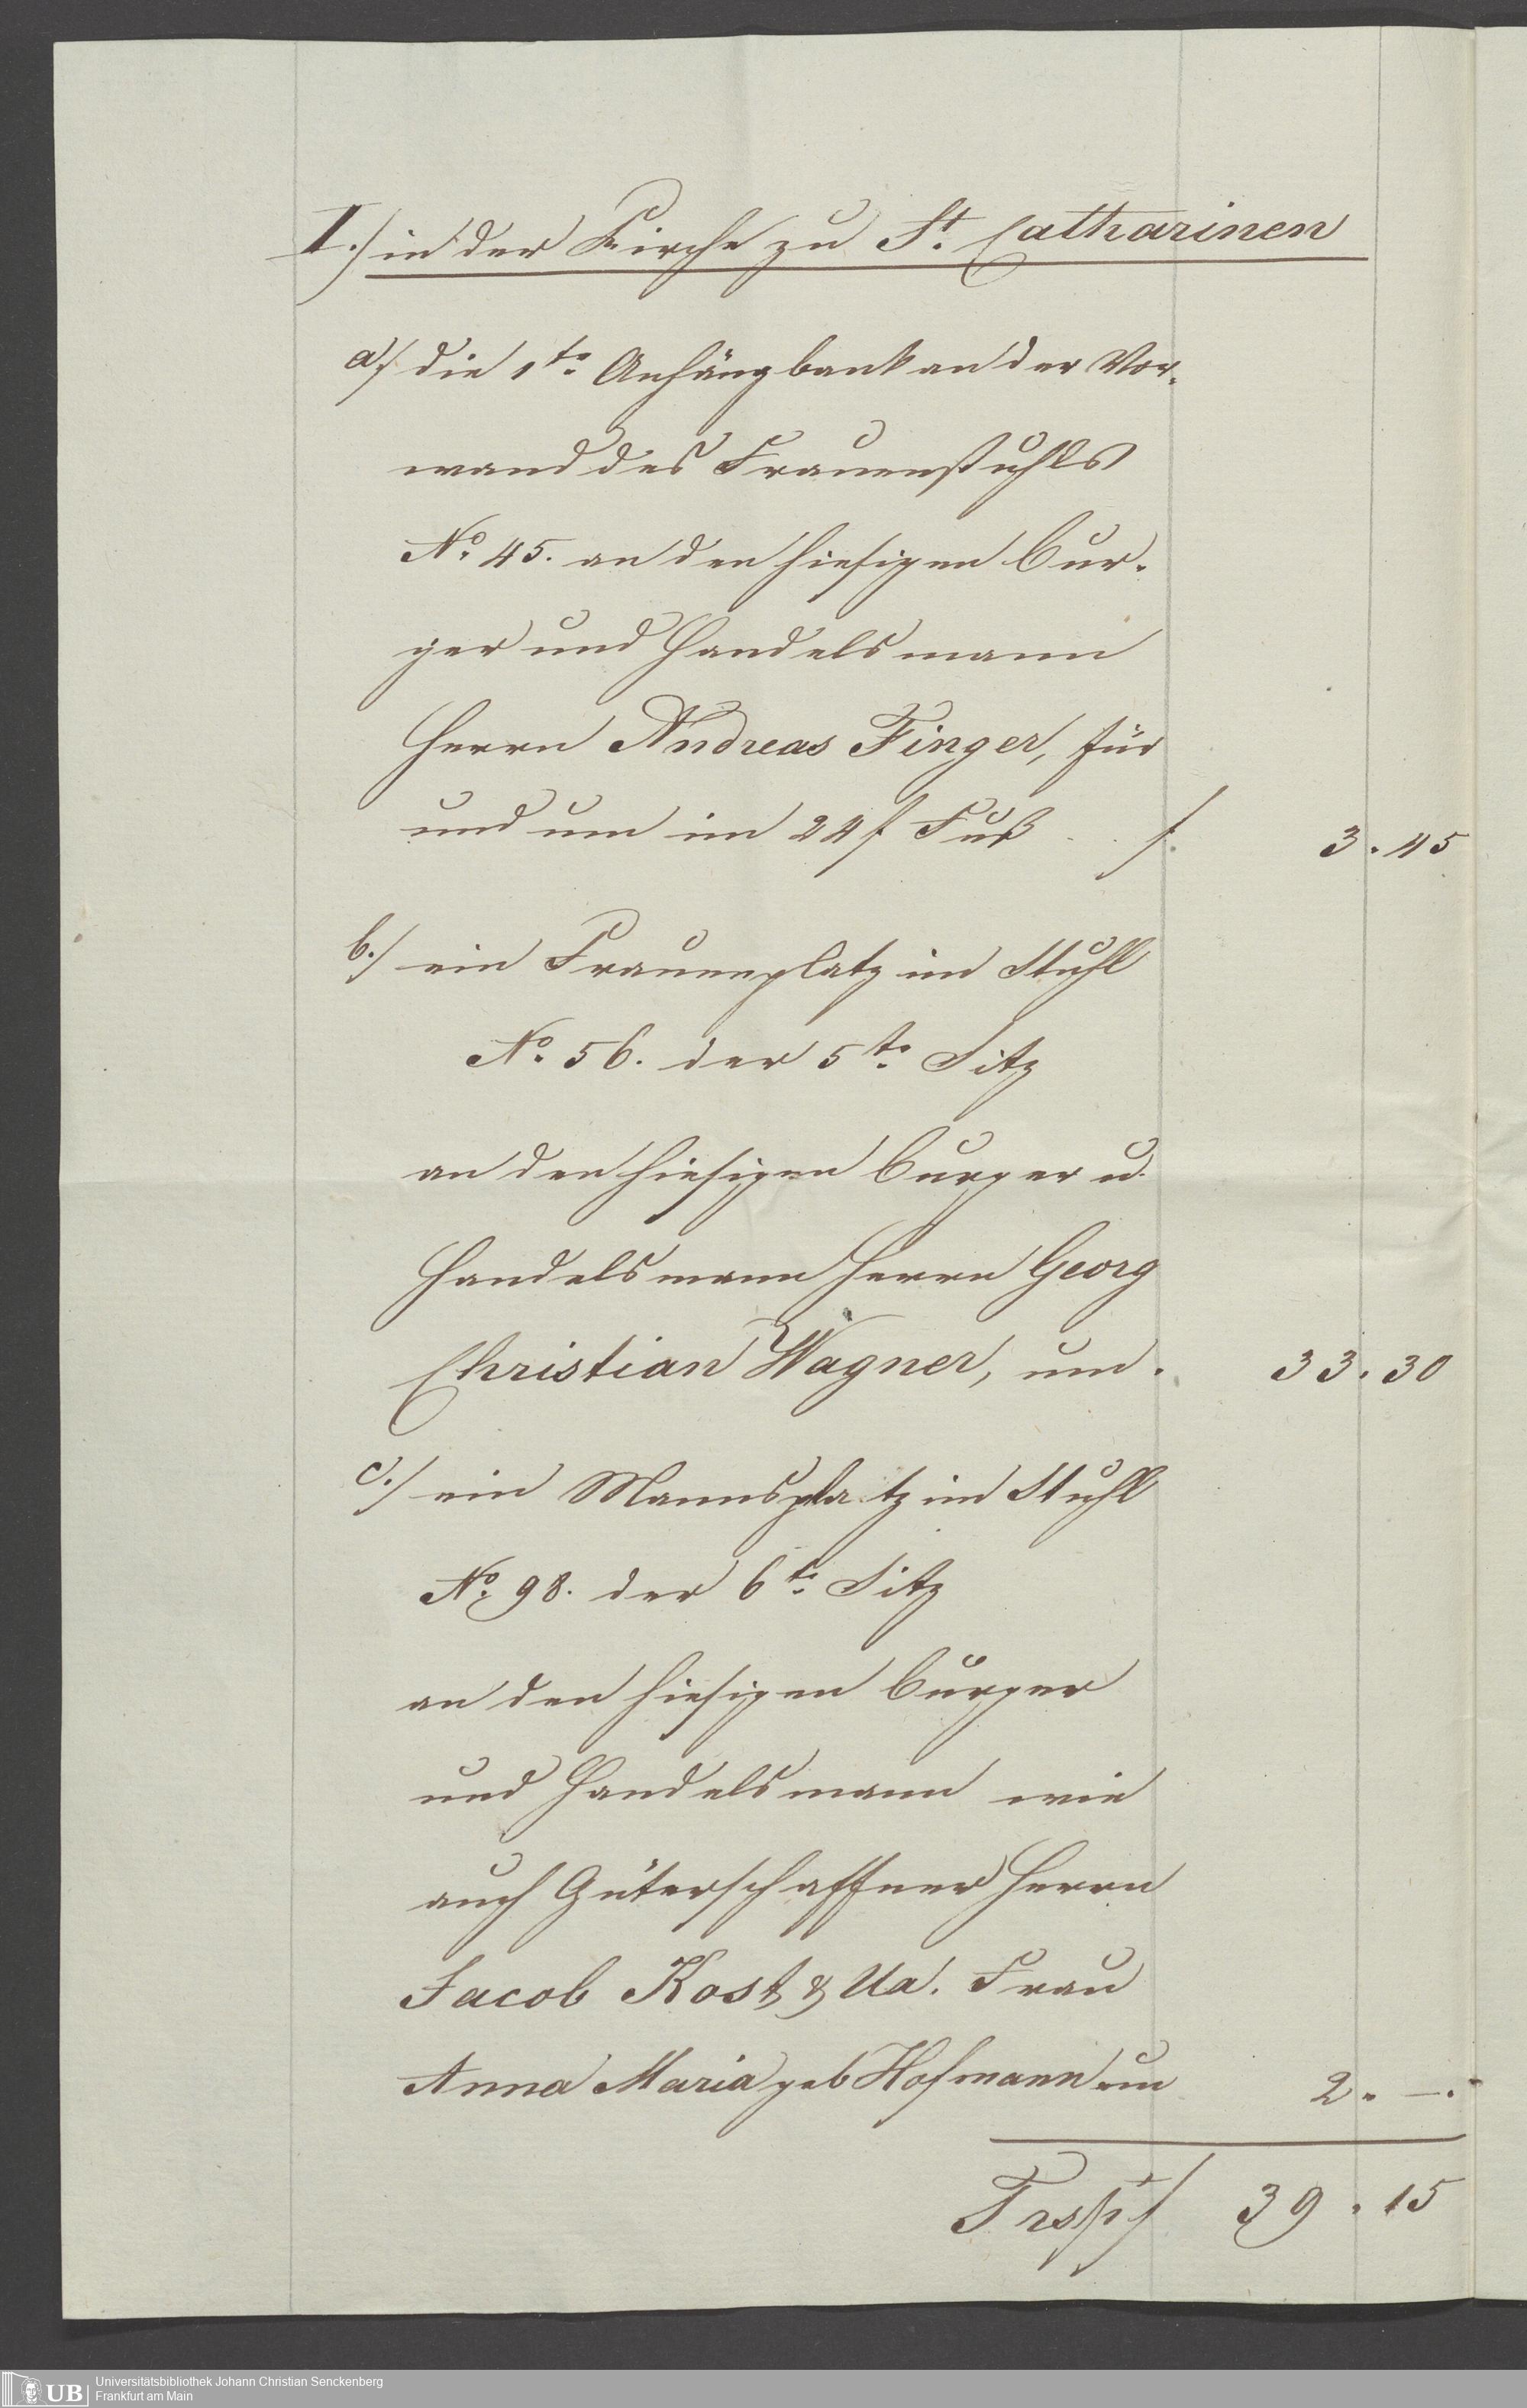 I./ in der Kirche zu St. Catharinen
a/ die 1te Anhängbank an der Vor-
wand des Frauenstuhls
No. 45. an den hiesigen Bur-
ger und Handelsmann
Herrn Andreas Finger, für
und um im 24 f Fuß . . f. 3. 45
b./ ein Frauenplatz im Stuhl
No. 56. der 5te Sitz
an den hiesigen Burger u.
Handelsmann Herrn Georg
Christian Wagner, um. 33. 30
c./ ein Mannsplatz im Stuhl
No. 98. der 6te Sitz
an den hiesigen Burger
und Handelsmann wie
auch Güterschaffner Herrn
Jacob Kost & Ua. Frau
Anna Maria geb Hofmann um 2. —.
Trspt f 39. 15
UB Universitätsbibliothek Johann Christian Senckenberg
Frankfurt am Main